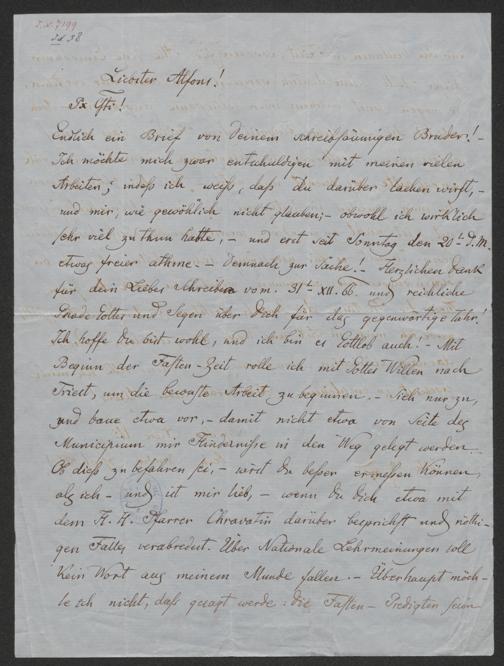 I.N. 7199
Id 38
Liebster Alfons!
Px Xti!
Endlich ein Brief von Deinem schreibsäumigen Bruder! –
Ich möchte mich zwar entschuldigen mit meinen vielen
Arbeiten; indeß ich weiß, daß du darüber lachen wirst, –
und mir, wie gewöhlich nicht glauben; – obwohl ich wirklich
sehr viel zu thun hatte, – und erst seit Sonntag den 20t. d.M.
etwas freier athme. – Demnach zur Sache! – Herzlichen Dank
für dein Liebes Schreiben vom 31t. XII. 66 und reichliche
Gnade Gottes und Segen über Dich für das gegenwärtige Jahr!
Ich hoffe du bist wohl, und ich bin es Gttlob auch! – Mit
Beginn der Fasten-Zeit rolle ich mit Gottes Willen nach
Triest, um die bewußte Arbeit zu beginnen. – Sieh nur zu,
und baue etwa vor, – damit nicht etwa von Seite des
Municipium mir Hinderniße in den Weg gelegt werden.
Ob dieß zu befahren sei, – wirst du beßer ermessen können
als ich – und ist mir lieb, – wenn du dich etwa mit
dem H. H. Pfarrer Chravatin darüber besprichst und nöthi-
gen Falles verabredest. Über Nationale Lehrmeinungen soll
kein Wort aus meinem Munde fallen. – Überhaupt möch-
te ich nicht, daß gesagt werde: die Fasten-Predigten seien